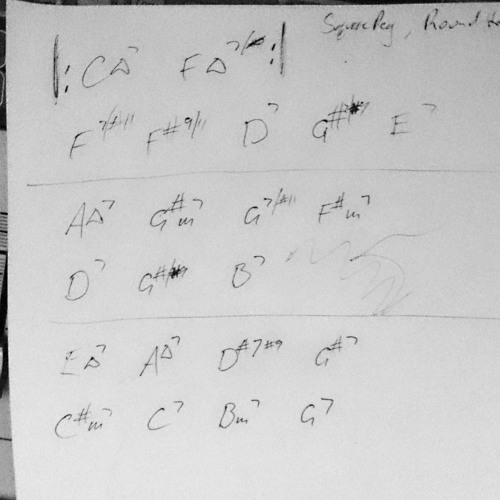 Square Peg, Round
|: CΔ7 FΔ7/# :|
F7/#11 F#9/11 D7 G#7/#9 E7
AΔ7 G#m7 G7/#11 F#m7
D7 G#/#9 B7
EΔ7 AΔ7 D#7#9 G#7
C#m7 C7 Bm7 G7